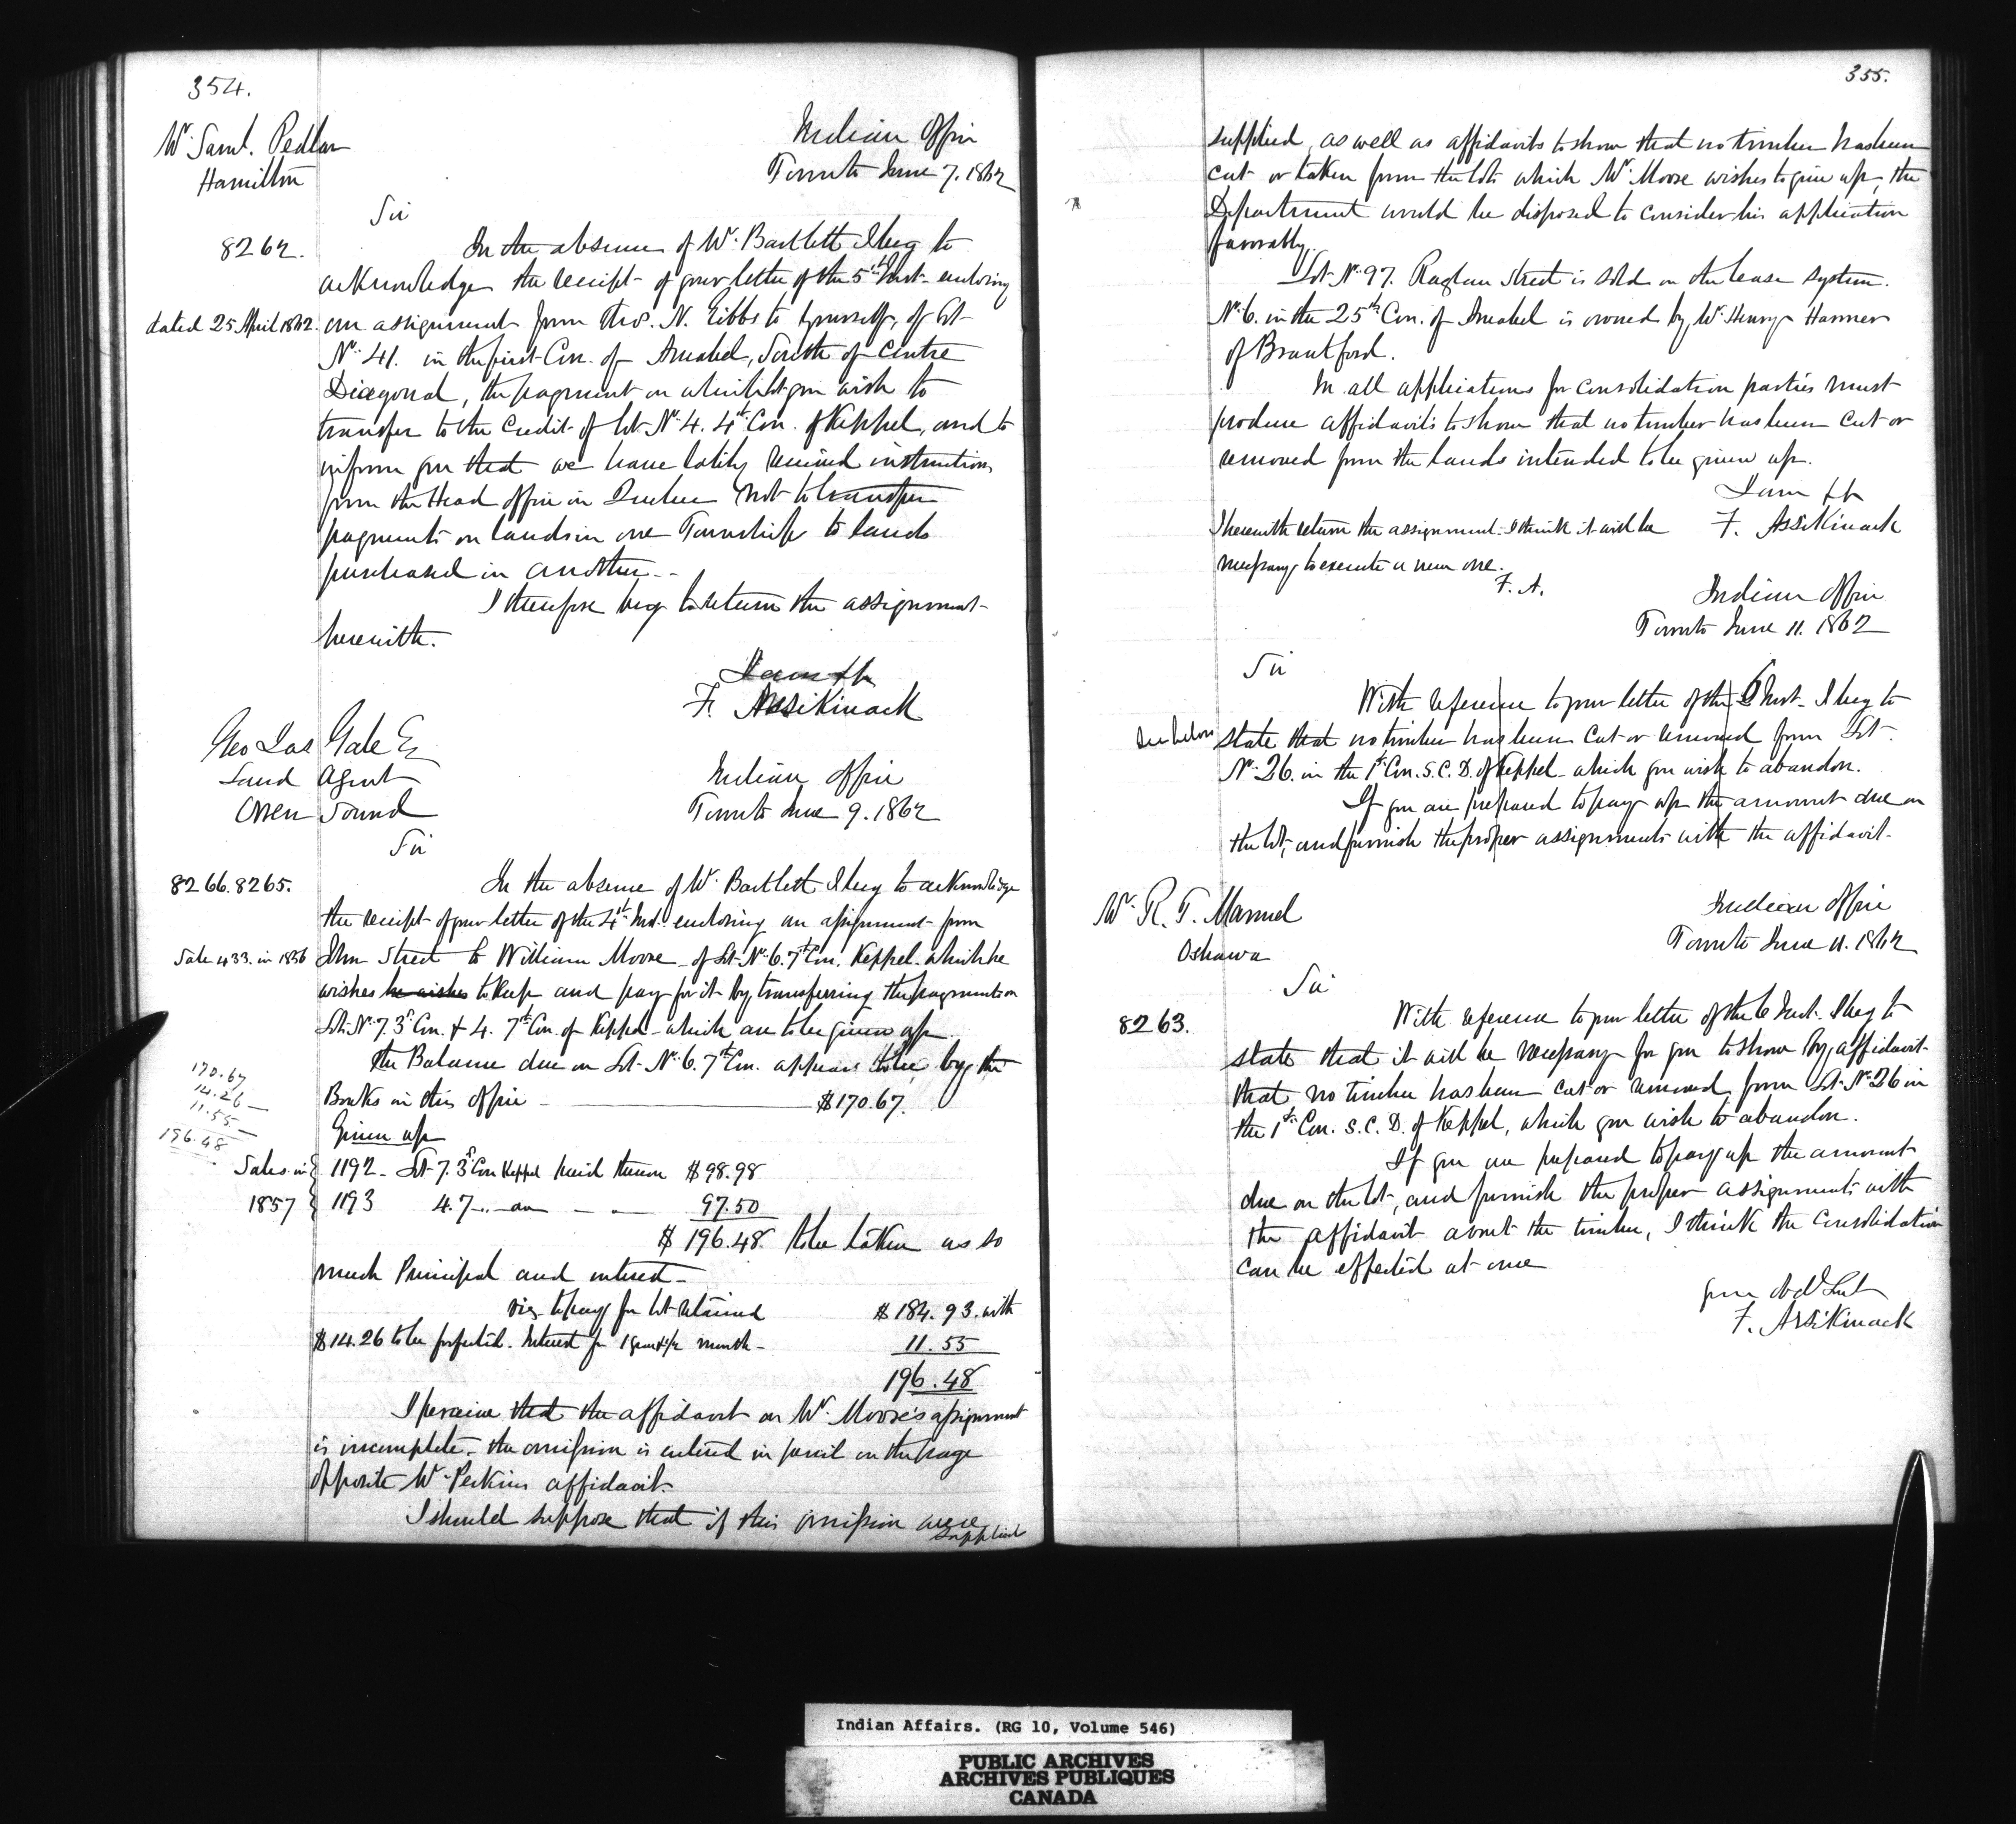 354.
Mr. Saml. Pedlar
Hamilton
Indian Office
Toronto June 7. 1862
Sir
8262.
In the absence of Mr. Bartlett I beg to
acknowledge the receipt of your letter of the 5th Inst. enclosing
dated 25 April 1862.
an assignment from Thos. N. Gibbs to yourself, of Lot
No. 41. in the first Con. of Amabel, South of Centre
Diagonal, the payment on which lot you wish to
transfer to the Credit of Lot No. 4. 4th Con. of Keppel, and to
inform you that we have lately received instructions
from the Head Office in Quebec not to transfer
payments on lands in one Township to lands
purchased in another.
I therefore beg to return the assignment
herewith.
I am &c
F. Assikinack
Geo Jas Gale Esq
Land Agent
Owen Sound
Indian Office
Toronto June 9. 1862
Sir
8266. 8265.
In the absence of Mr. Bartlett I beg to acknowledge
the receipt of your letter of the 4th Inst. enclosing an assignment from
Sale 433. in 1856
John Street to William Moore of Lot No. 6. 7th Con. Keppel which he
wishes he wishes to keep and pay for it by transferring the payments on
Lots No. 7. 3d Con. & 4. 7th Con. of Keppel which are to be given up.
The Balance due on Lot No. 6. 7th Con. appears to be by the
Books in this office $170.67.
170.67
14.26
11.55
196.48
Given up
Sales in 1857
1192 - Lot 7. 3d Con Keppel paid thereon $98.98
1193 4. 7 .. do — — 97.50
$196.48. to be taken as so
much Principal and interest
viz to pay for lot retained $184.93. with
$14.26 to be forfeited. Interest for 1 year & ½ month - 11.55
196.48
I perceive that the affidavit on Mr. Moore's assignment
is incomplete. the omission is entered in pencil on the page
opposite Mr. Perkins affidavit.
I should suppose that if this omission were
supplied
355.
supplied, as well as affidavits to show that no timber has been
cut or taken from the lots which Mr. Moore wishes to give up, the
Department would be disposed to consider his application
favorably.
Lot No. 97. Raglan Street is sold on the lease system.
No. 6. in the 25th Con. of Amabel is owned by Mr. Henry Hammer
of Brantford.
In all applications for consolidation parties must
produce affidavits to show that no timber has been cut or
removed from the lands intended to be given up.
I am &c
F. Assikinack
I herewith return the assignment. I think it will be
necessary to execute a new one.
F. A.
Indian Office
Toronto June 11. 1862
Sir
With reference to your letter of the 6 Inst. I beg to
See below
state that no timber has been cut or removed from Lot
No. 26. in the 1st Con. S.C.D. of Keppel which you wish to abandon.
If you are prepared to pay up the amount due on
the lot, and furnish the proper assignments with the affidavit
Mr. R. T. Manuel
Oshawa
Indian Office
Toronto June 11. 1862
Sir
8263.
With reference to your letter of the 6 Inst. I beg to
state that it will be necessary for you to show by affidavit
that no timber has been cut or removed from Lot No. 26 in
the 1st Con. S.C.D. of Keppel, which you wish to abandon.
If you are prepared to pay up the amount
due on the lot, and furnish the proper assignments with
the affidavit about the timber, I think the Consolidation
can be effected at once
your Obdt Sert
F. Assikinack
Indian Affairs. (RG 10, Volume 546)
PUBLIC ARCHIVES
ARCHIVES PUBLIQUES
CANADA